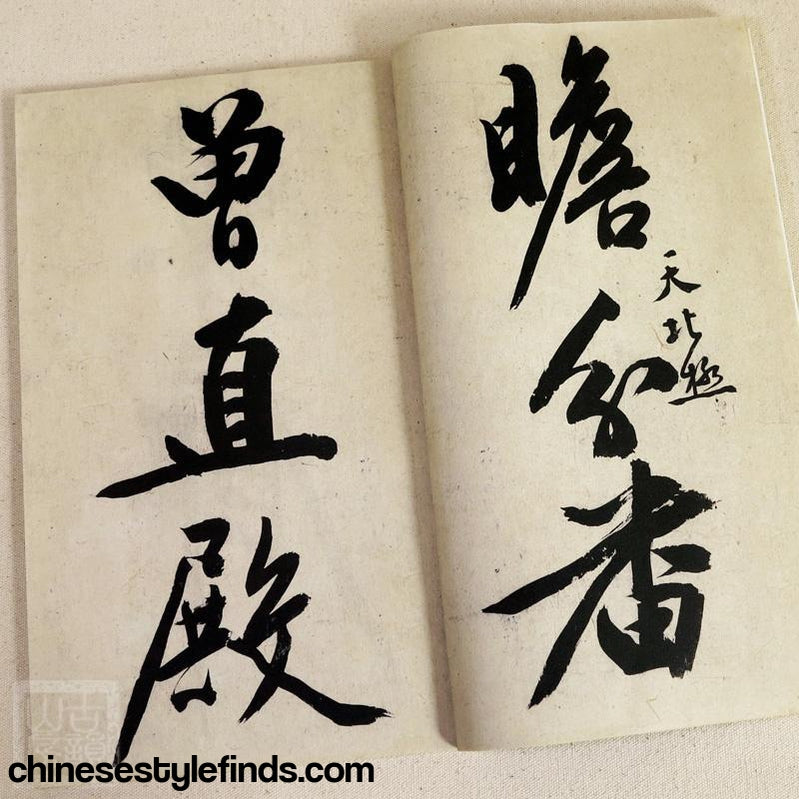 瞻分番
天北極
曾直殿
chinesestylefinds.com